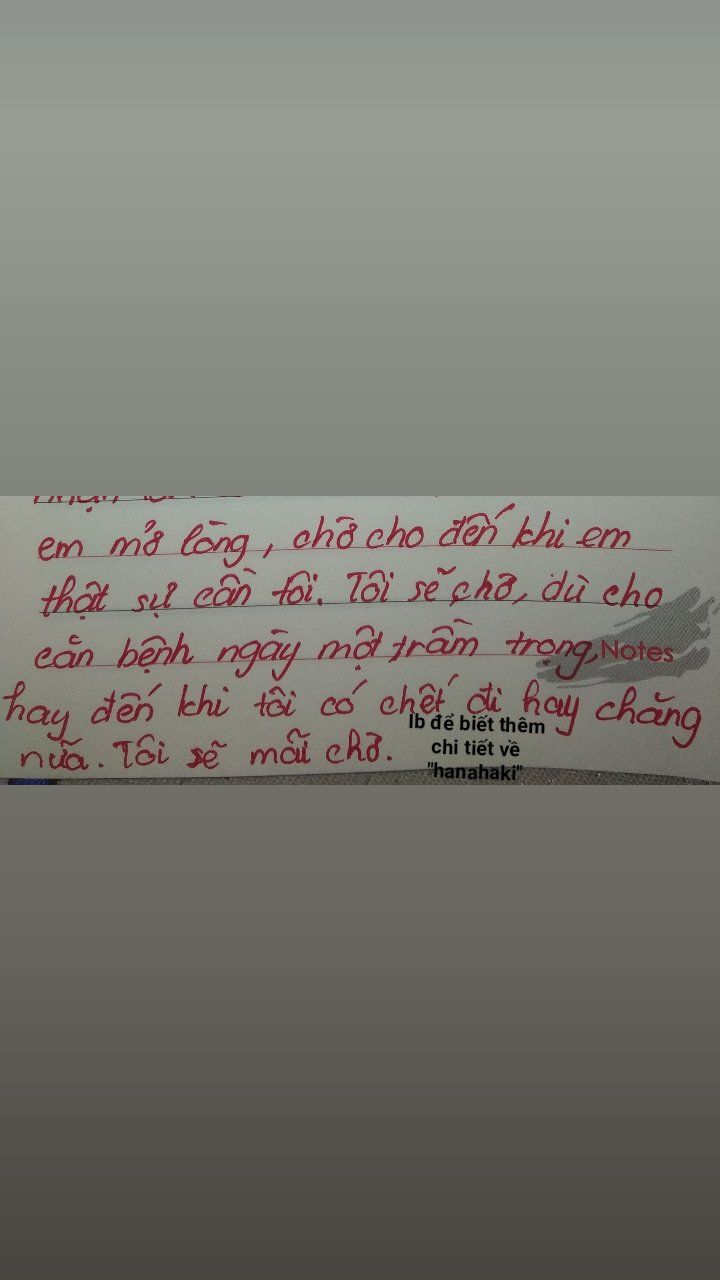 em mở lòng, chờ cho đến khi em
thật sự cần tôi. Tôi sẽ chờ, dù cho
căn bệnh ngày một trầm trọng, Notes
hay đến khi tôi có chết đi hay chăng
nữa. Tôi sẽ mãi chờ.
Ib để biết thêm
chi tiết về
"hanahaki"